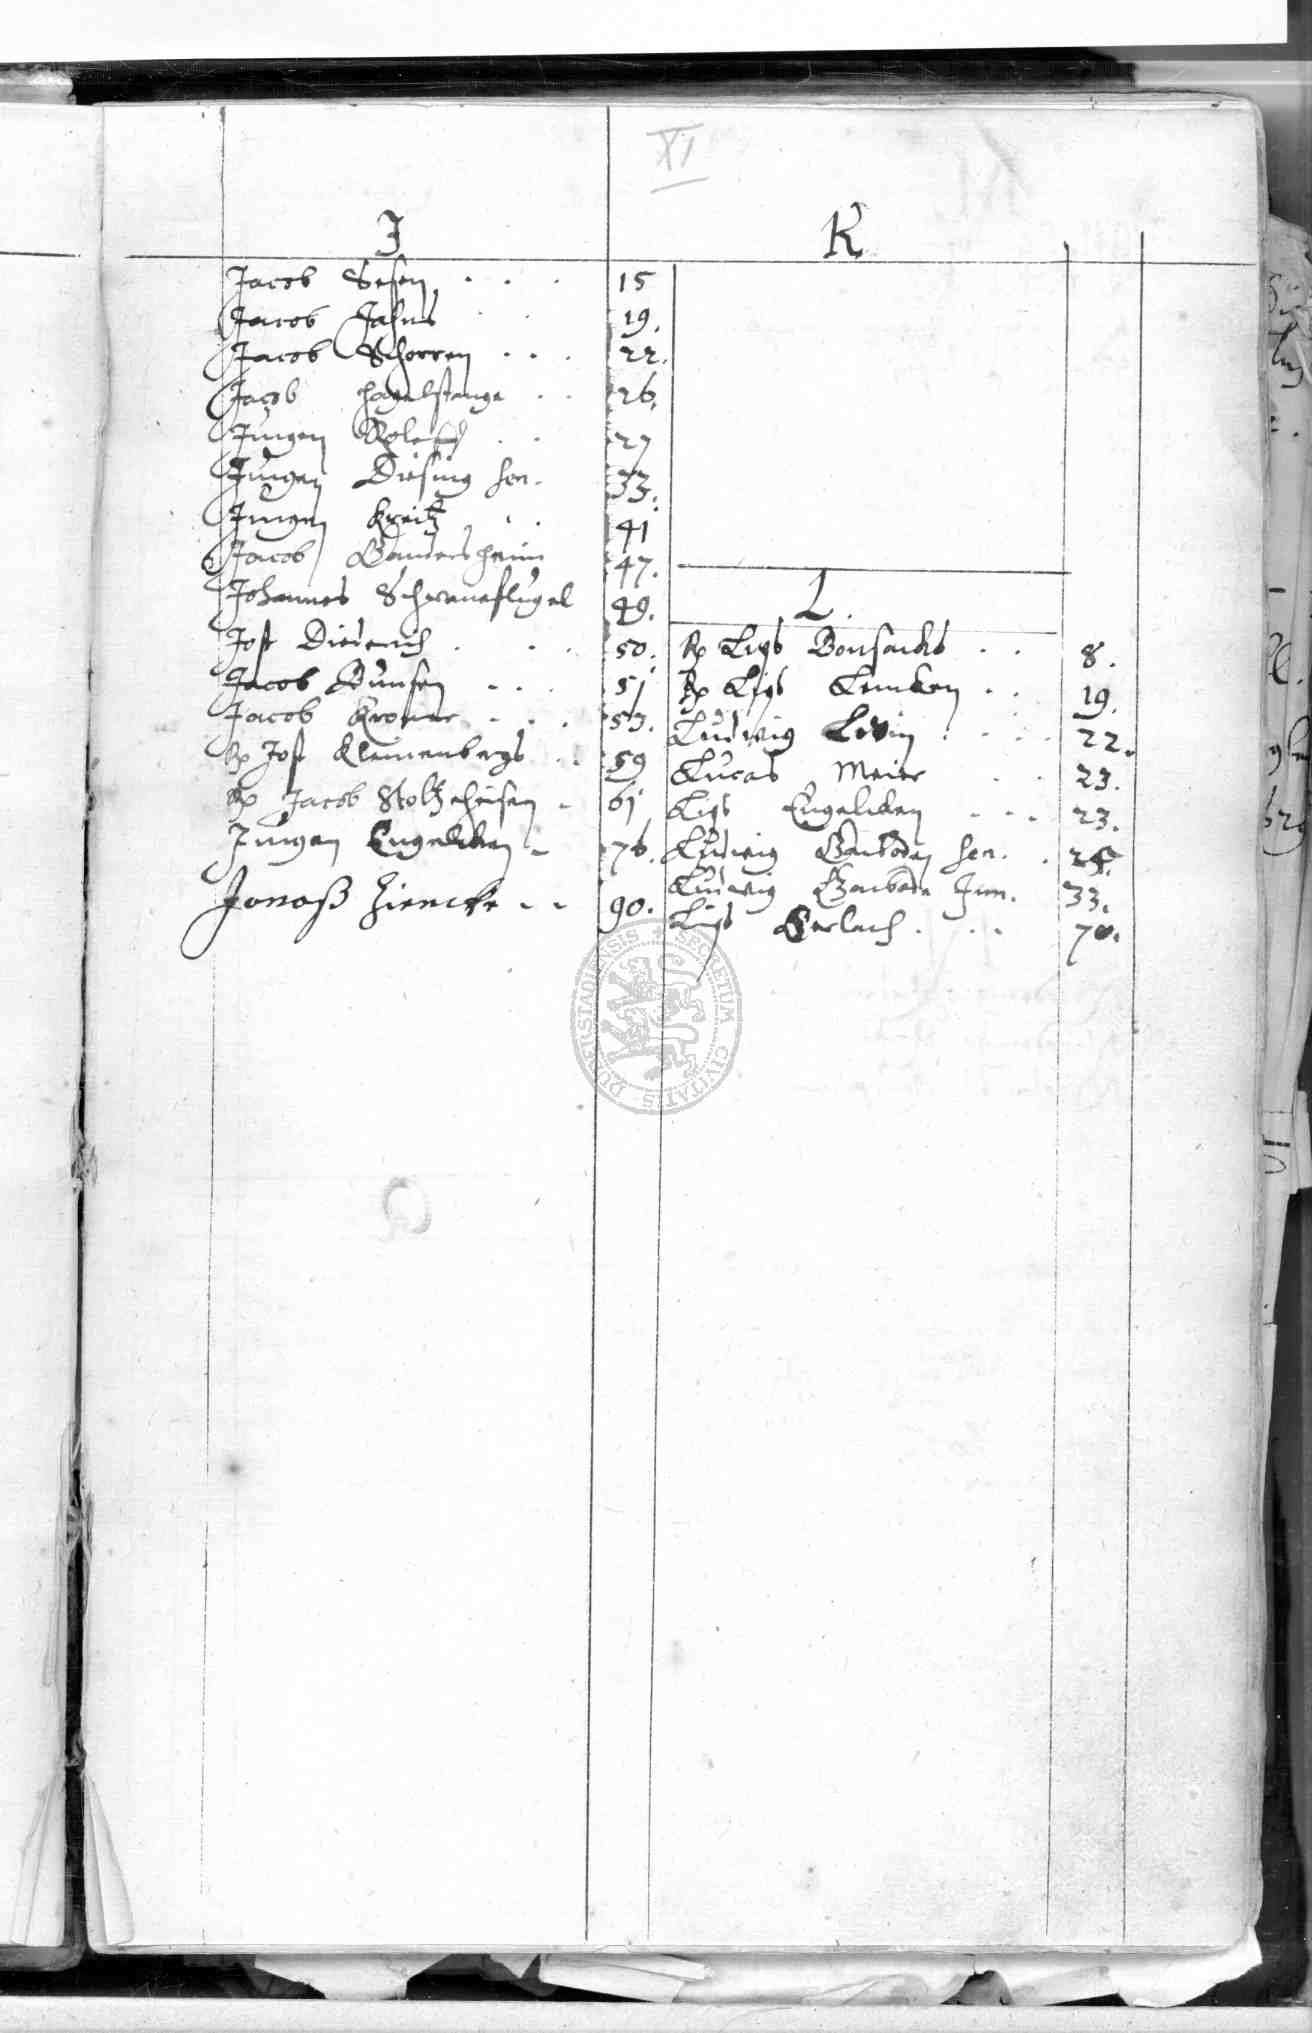 XI
J
Jacob Sesen 15
Jacob Jahns 19.
Jacob Schorren 22.
Jacob Hagelstange 26.
Jurgen 27
Jurgen Diesing sen. 33.
Jurgen Kreitz 41
Jacob Gandersheim 47.
Johannes Schweneflügel 49.
Jost Diederich 50.
Jacob Bunsen 51
Jacob Kroner 53.
Jost Klemenbergs 59
Jacob Stoltzehusen 61
Jurgen Engelcken 76.
Jonaß Hiencke 90.
K
L.
Ligs Bonsacks 8.
Ligs Lemcken 19.
Ludwig Levin 22.
Lucas Meier 23.
Ligs Engelcken 23.
Ludwig Barboden sen.
Ludwig Barbode Jun. 33.
Ligs Gerlach 70.
SECRETUM CIVITATIS DUDERSTADIENSIS